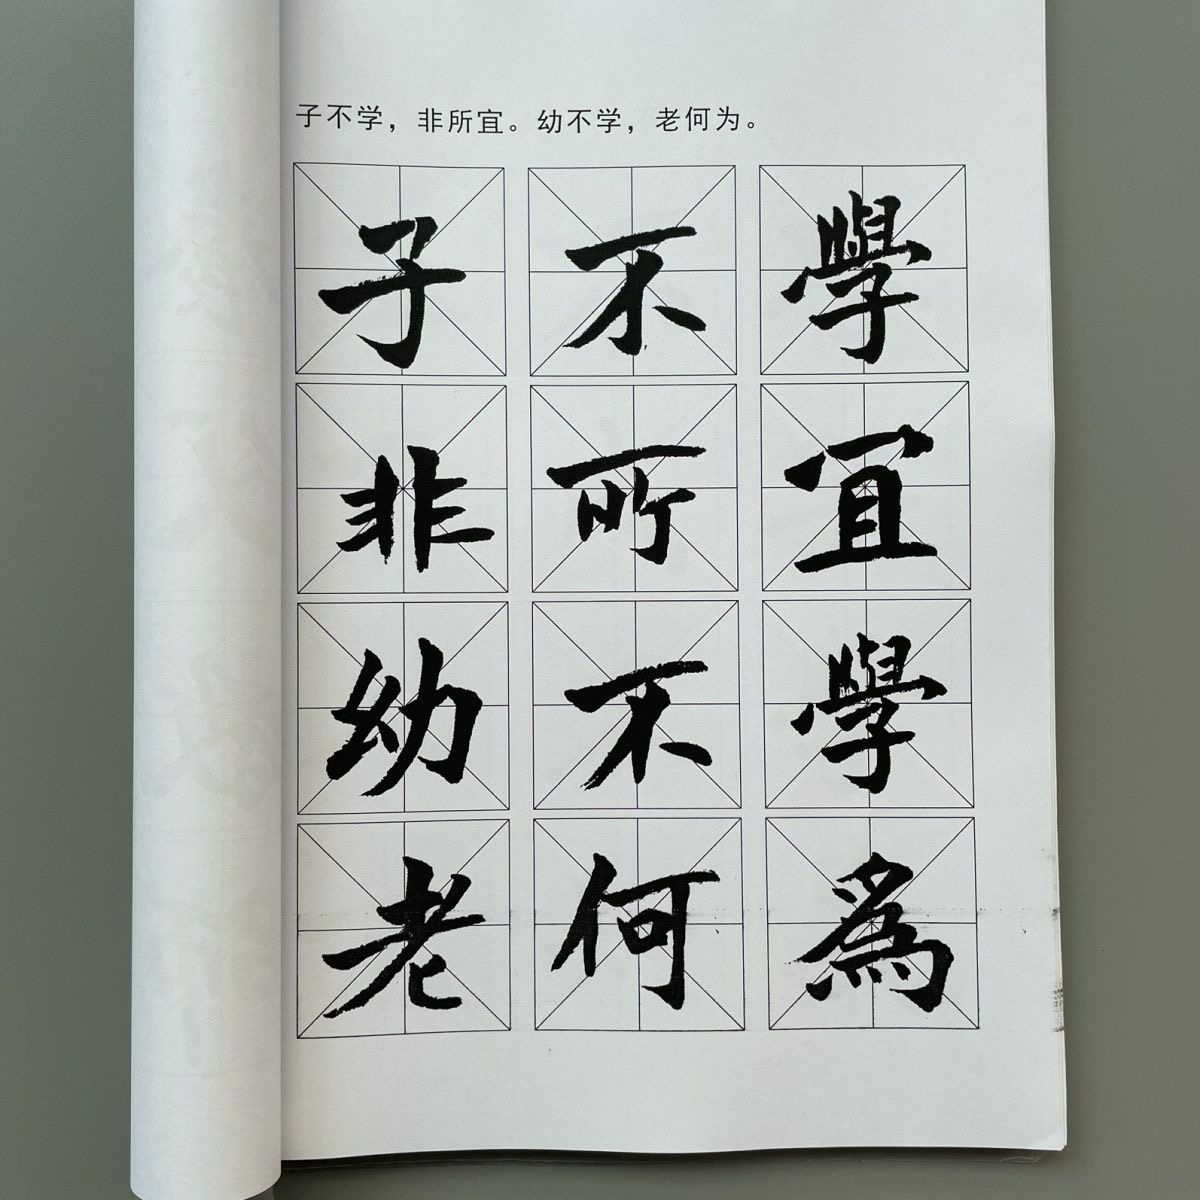 子不学，非所宜。幼不学，老何为。
子不學
非所宜
幼不學
老何為